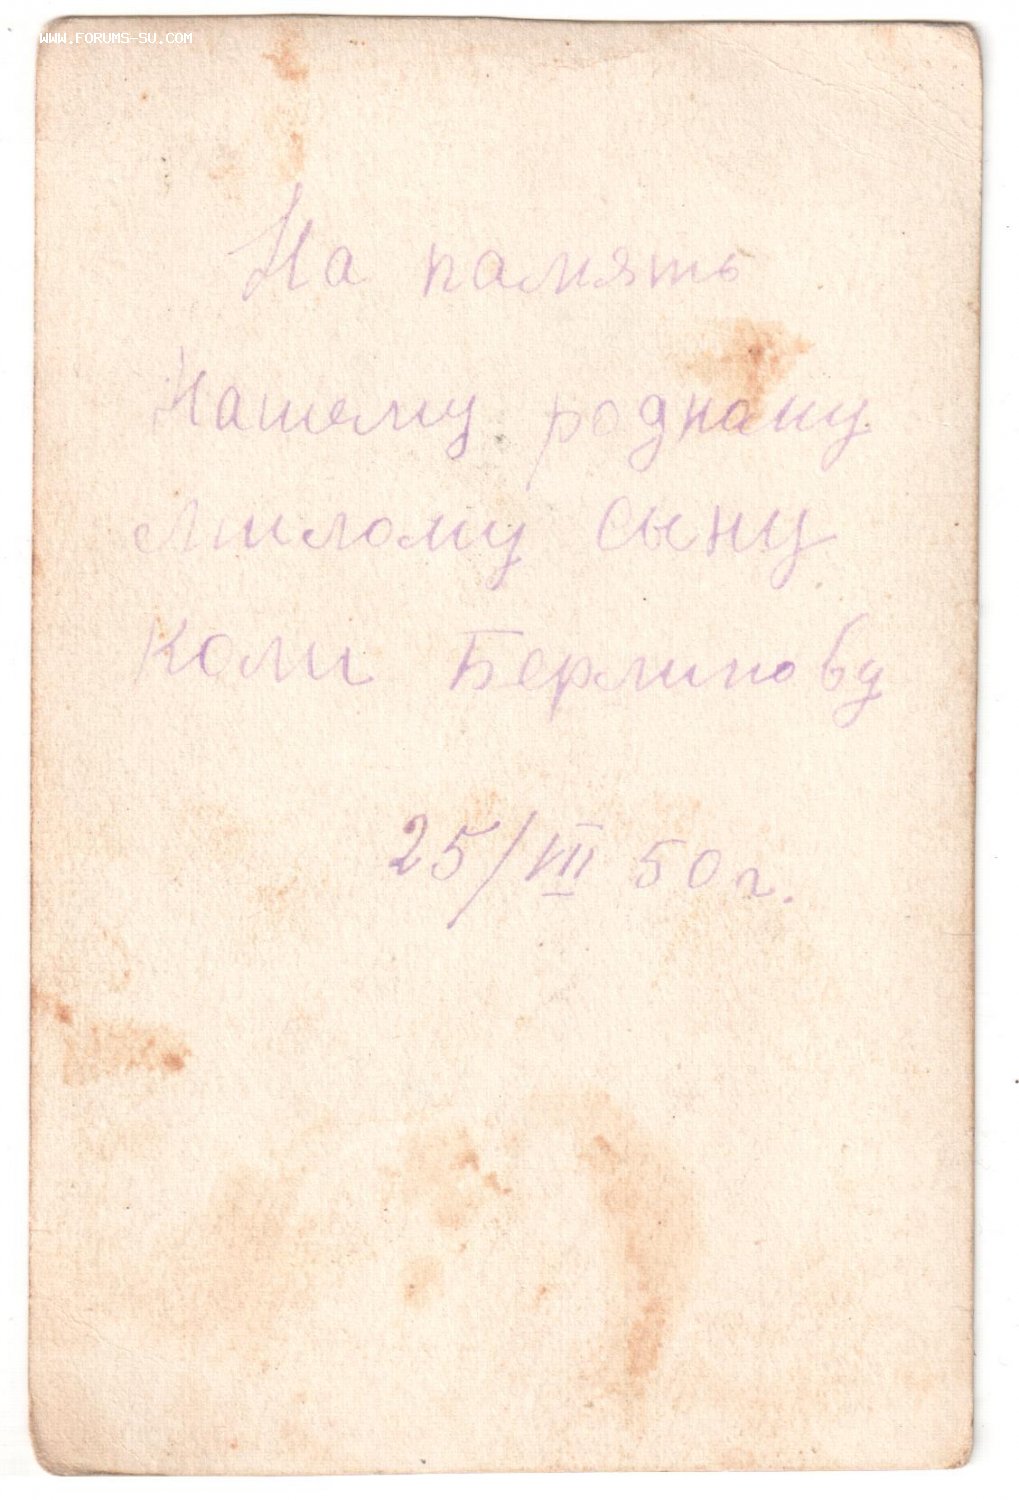 WWW.FORUMS-SU.COM
На память
Нашему роднану
милому сыну
Коли Берлинову
25/VIII 50 г.